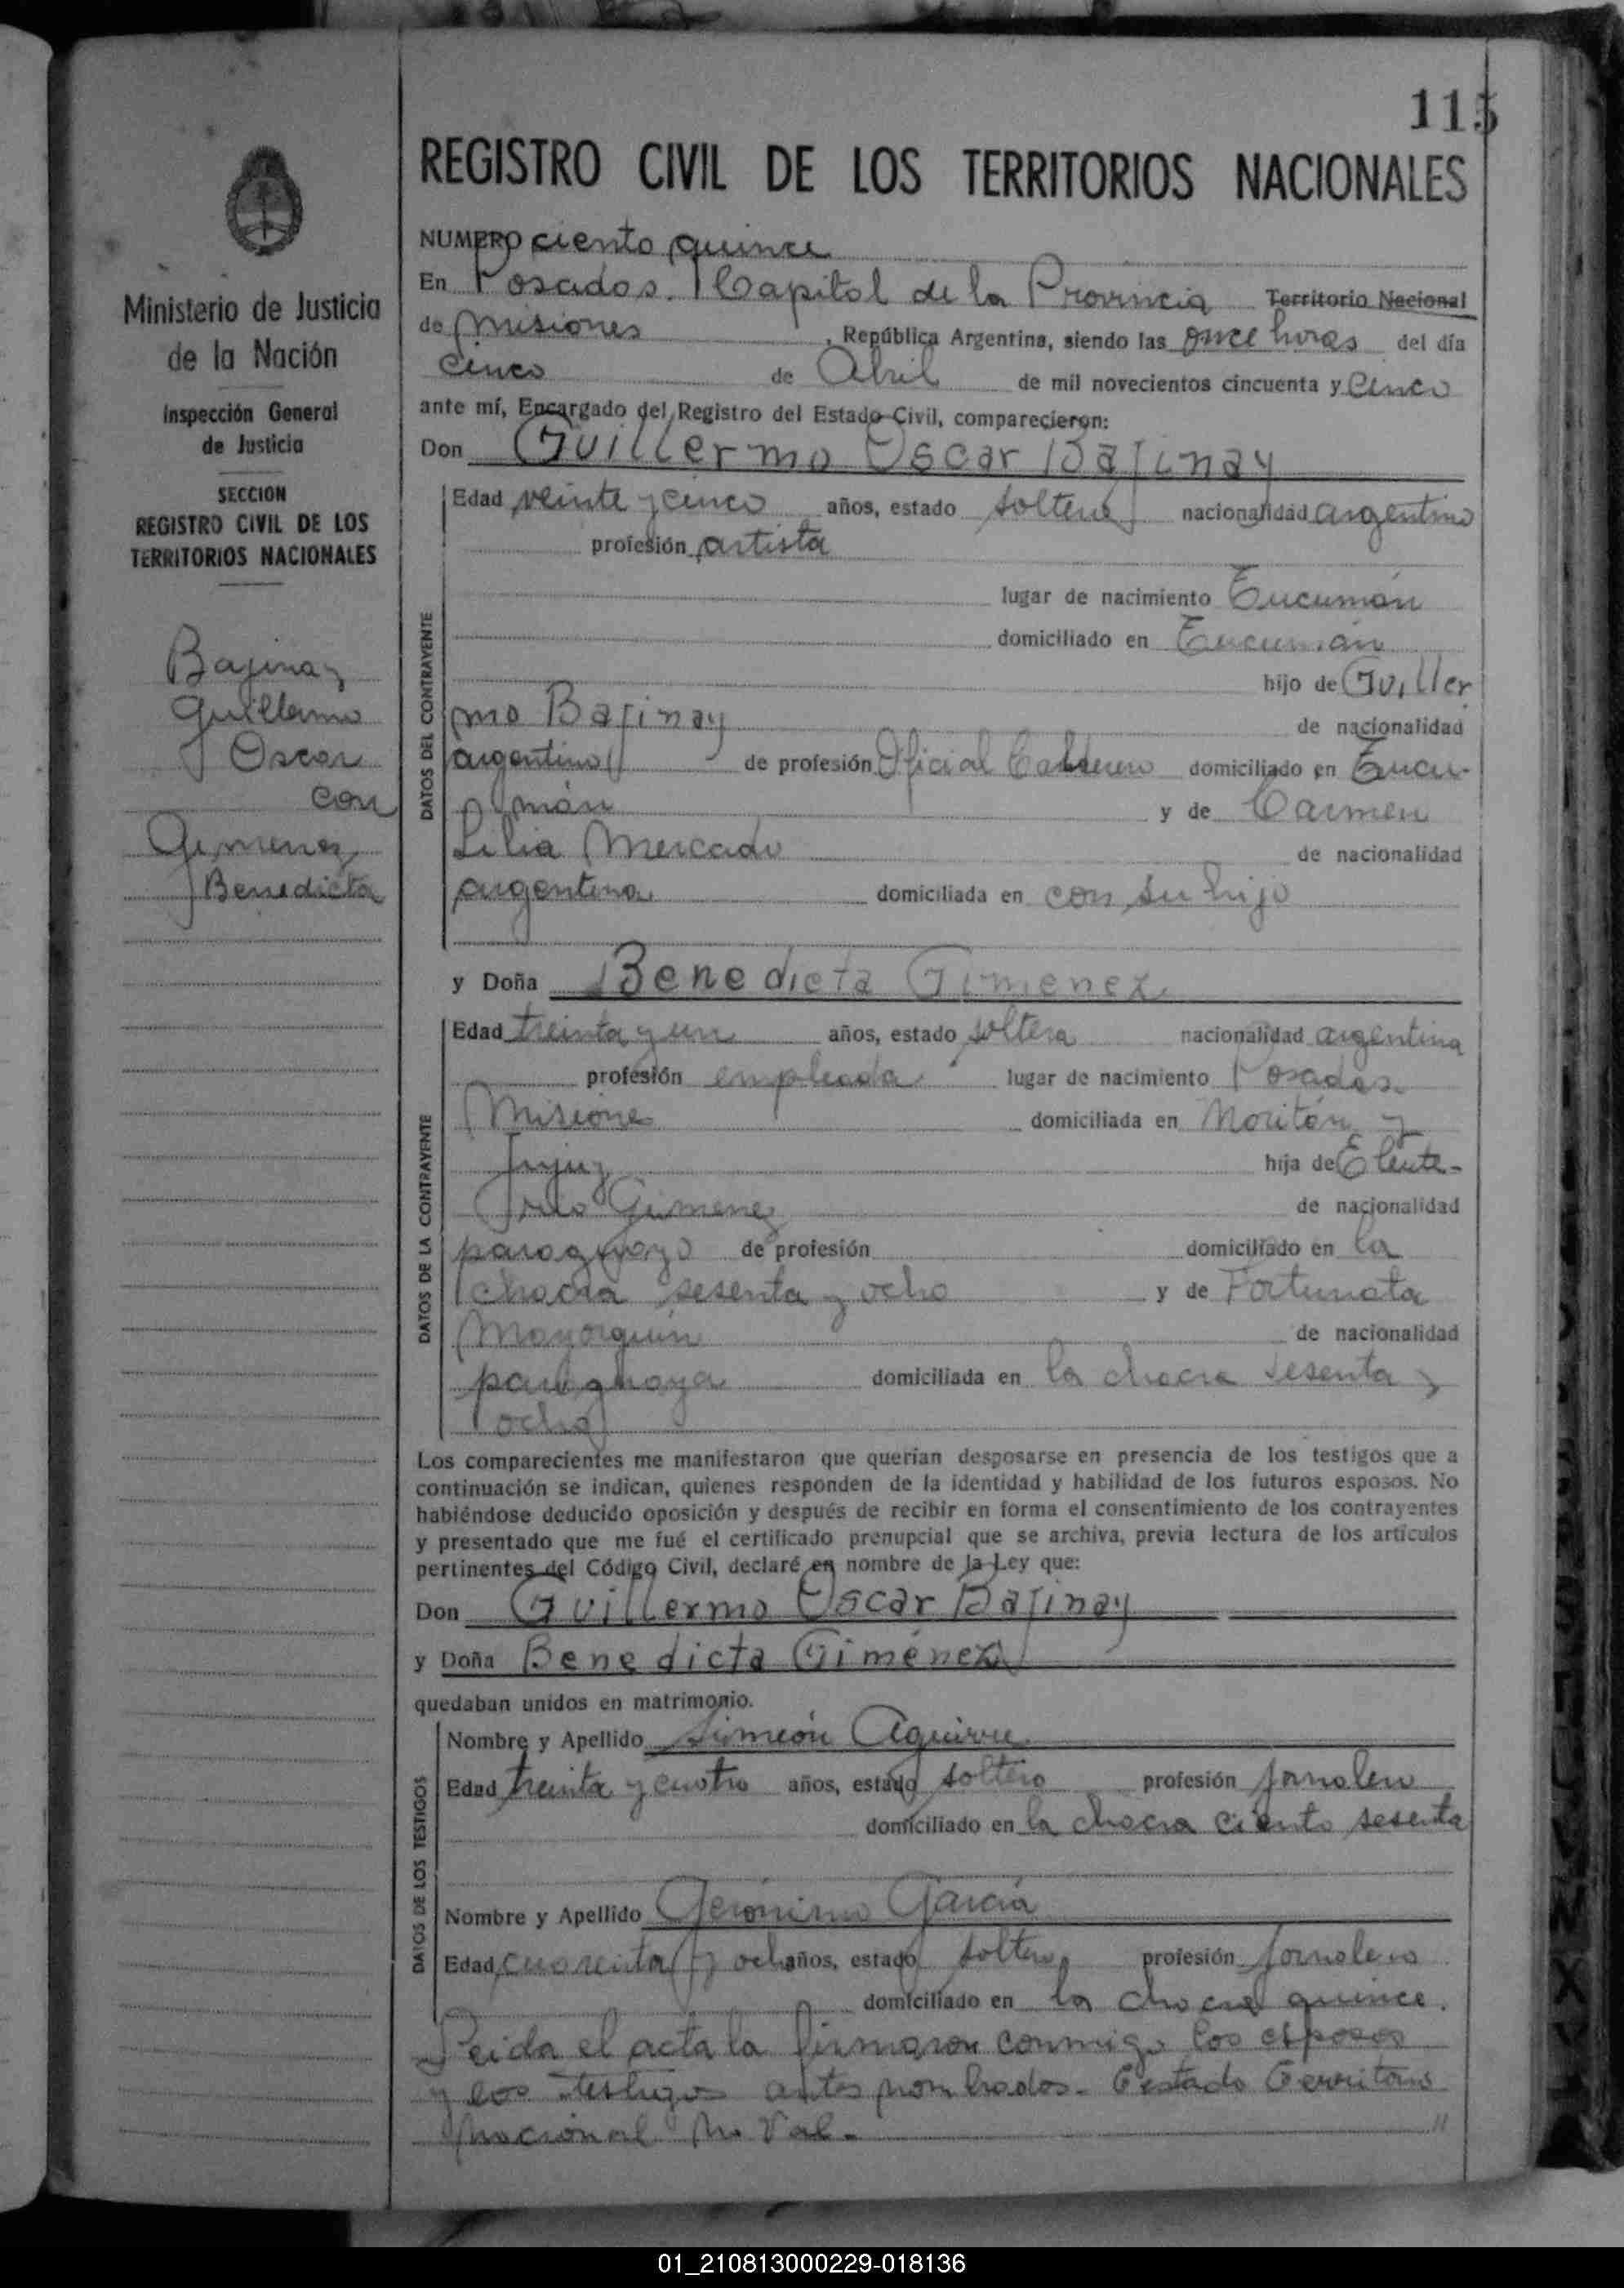 115
REGISTRO CIVIL DE LOS TERRITORIOS NACIONALES
Ministerio de Justicia
de la Nación
Inspección General
de Justicia
SECCION
REGISTRO CIVIL DE LOS
TERRITORIOS NACIONALES
Bajinay
Guillermo
Oscar
con
Gimenez
Benedicta
NUMERO ciento quince
En Posadas. Capital de la Provincia Territorio Nacional
de Misiones, República Argentina, siendo las once horas del día
cinco de Abril de mil novecientos cincuenta y cinco
ante mí, Encargado del Registro del Estado Civil, comparecieron:
Don Guillermo Oscar Bajinay
DATOS DEL CONTRAYENTE
Edad veinte y cinco años, estado soltero nacionalidad argentino
profesión artista
lugar de nacimiento Tucumán
domiciliado en Tucumán
hijo de Guiller
mo Bajinay de nacionalidad
argentino de profesión Oficial domiciliado en Tucu-
mán y de Carmen
Lilia Mercado de nacionalidad
argentina domiciliada en con su hijo
y Doña Benedicta Gimenez
DATOS DE LA CONTRAYENTE
Edad treinta y un años, estado soltera nacionalidad argentina
profesión empleada lugar de nacimiento Posadas
Misiones domiciliada en y
Jujuy hija de Eleute-
rio Gimenez de nacionalidad
paraguayo de profesión domiciliado en la
chacra sesenta y ocho y de Fortunata
Mayorquin de nacionalidad
paraguaya domiciliada en la chacra sesenta y
ocho
Los comparecientes me manifestaron que querían desposarse en presencia de los testigos que a
continuación se indican, quienes responden de la identidad y habilidad de los futuros esposos. No
habiéndose deducido oposición y después de recibir en forma el consentimiento de los contrayentes
y presentado que me fué el certificado prenupcial que se archiva, previa lectura de los artículos
pertinentes del Código Civil, declaré en nombre de la Ley que:
Don Guillermo Oscar Bajinay
y Doña Benedicta Giménez
quedaban unidos en matrimonio.
DATOS DE LOS TESTIGOS
Nombre y Apellido Simeón Aguirre
Edad treinta y cuatro años, estado soltero profesión jornalero
domiciliado en la chacra ciento sesenta
Nombre y Apellido Gerónimo García
Edad cuarenta y ocho años, estado soltero profesión jornalero
domiciliado en la chacra quince.
Leida el acta la firmaron conmigo los esposos
y los testigos antes nombrados. Testado Territorio
Nacional No Val.
01_210813000229-018136